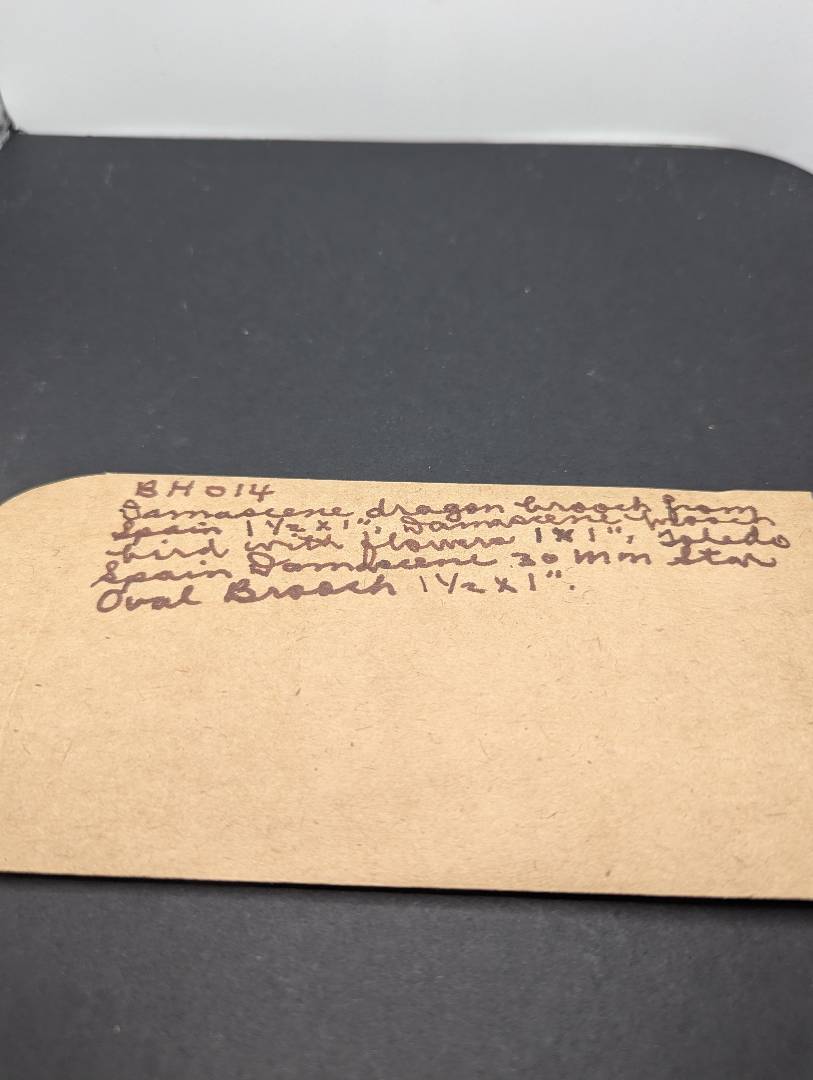 BH014
Damascene dragon brooch from
Spain 1 1/2 x 1", Damascene brooch
bird with flowers 1 x 1", Toledo
Spain Damascene 30 mm star
Oval Brooch 1 1/2 x 1".